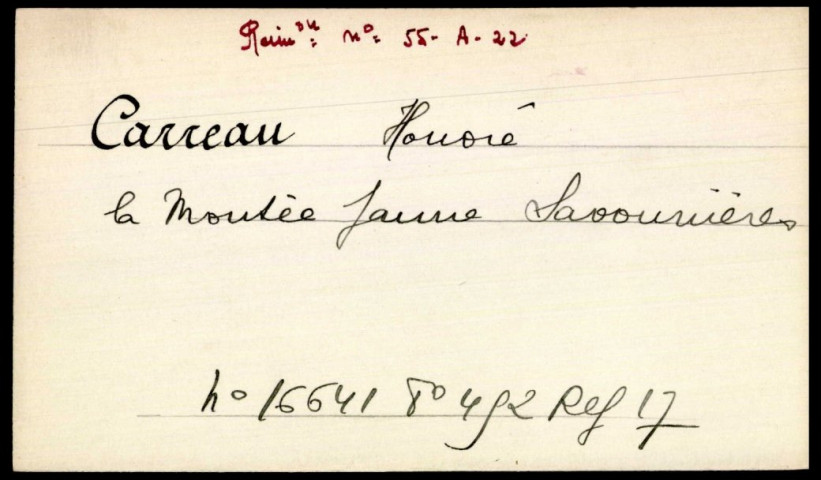 Reim^on: n°= 55- A- 22
Carreau Honoré
la Montée Jaune Savonnières
n° 16641 F° 492 Reg 17